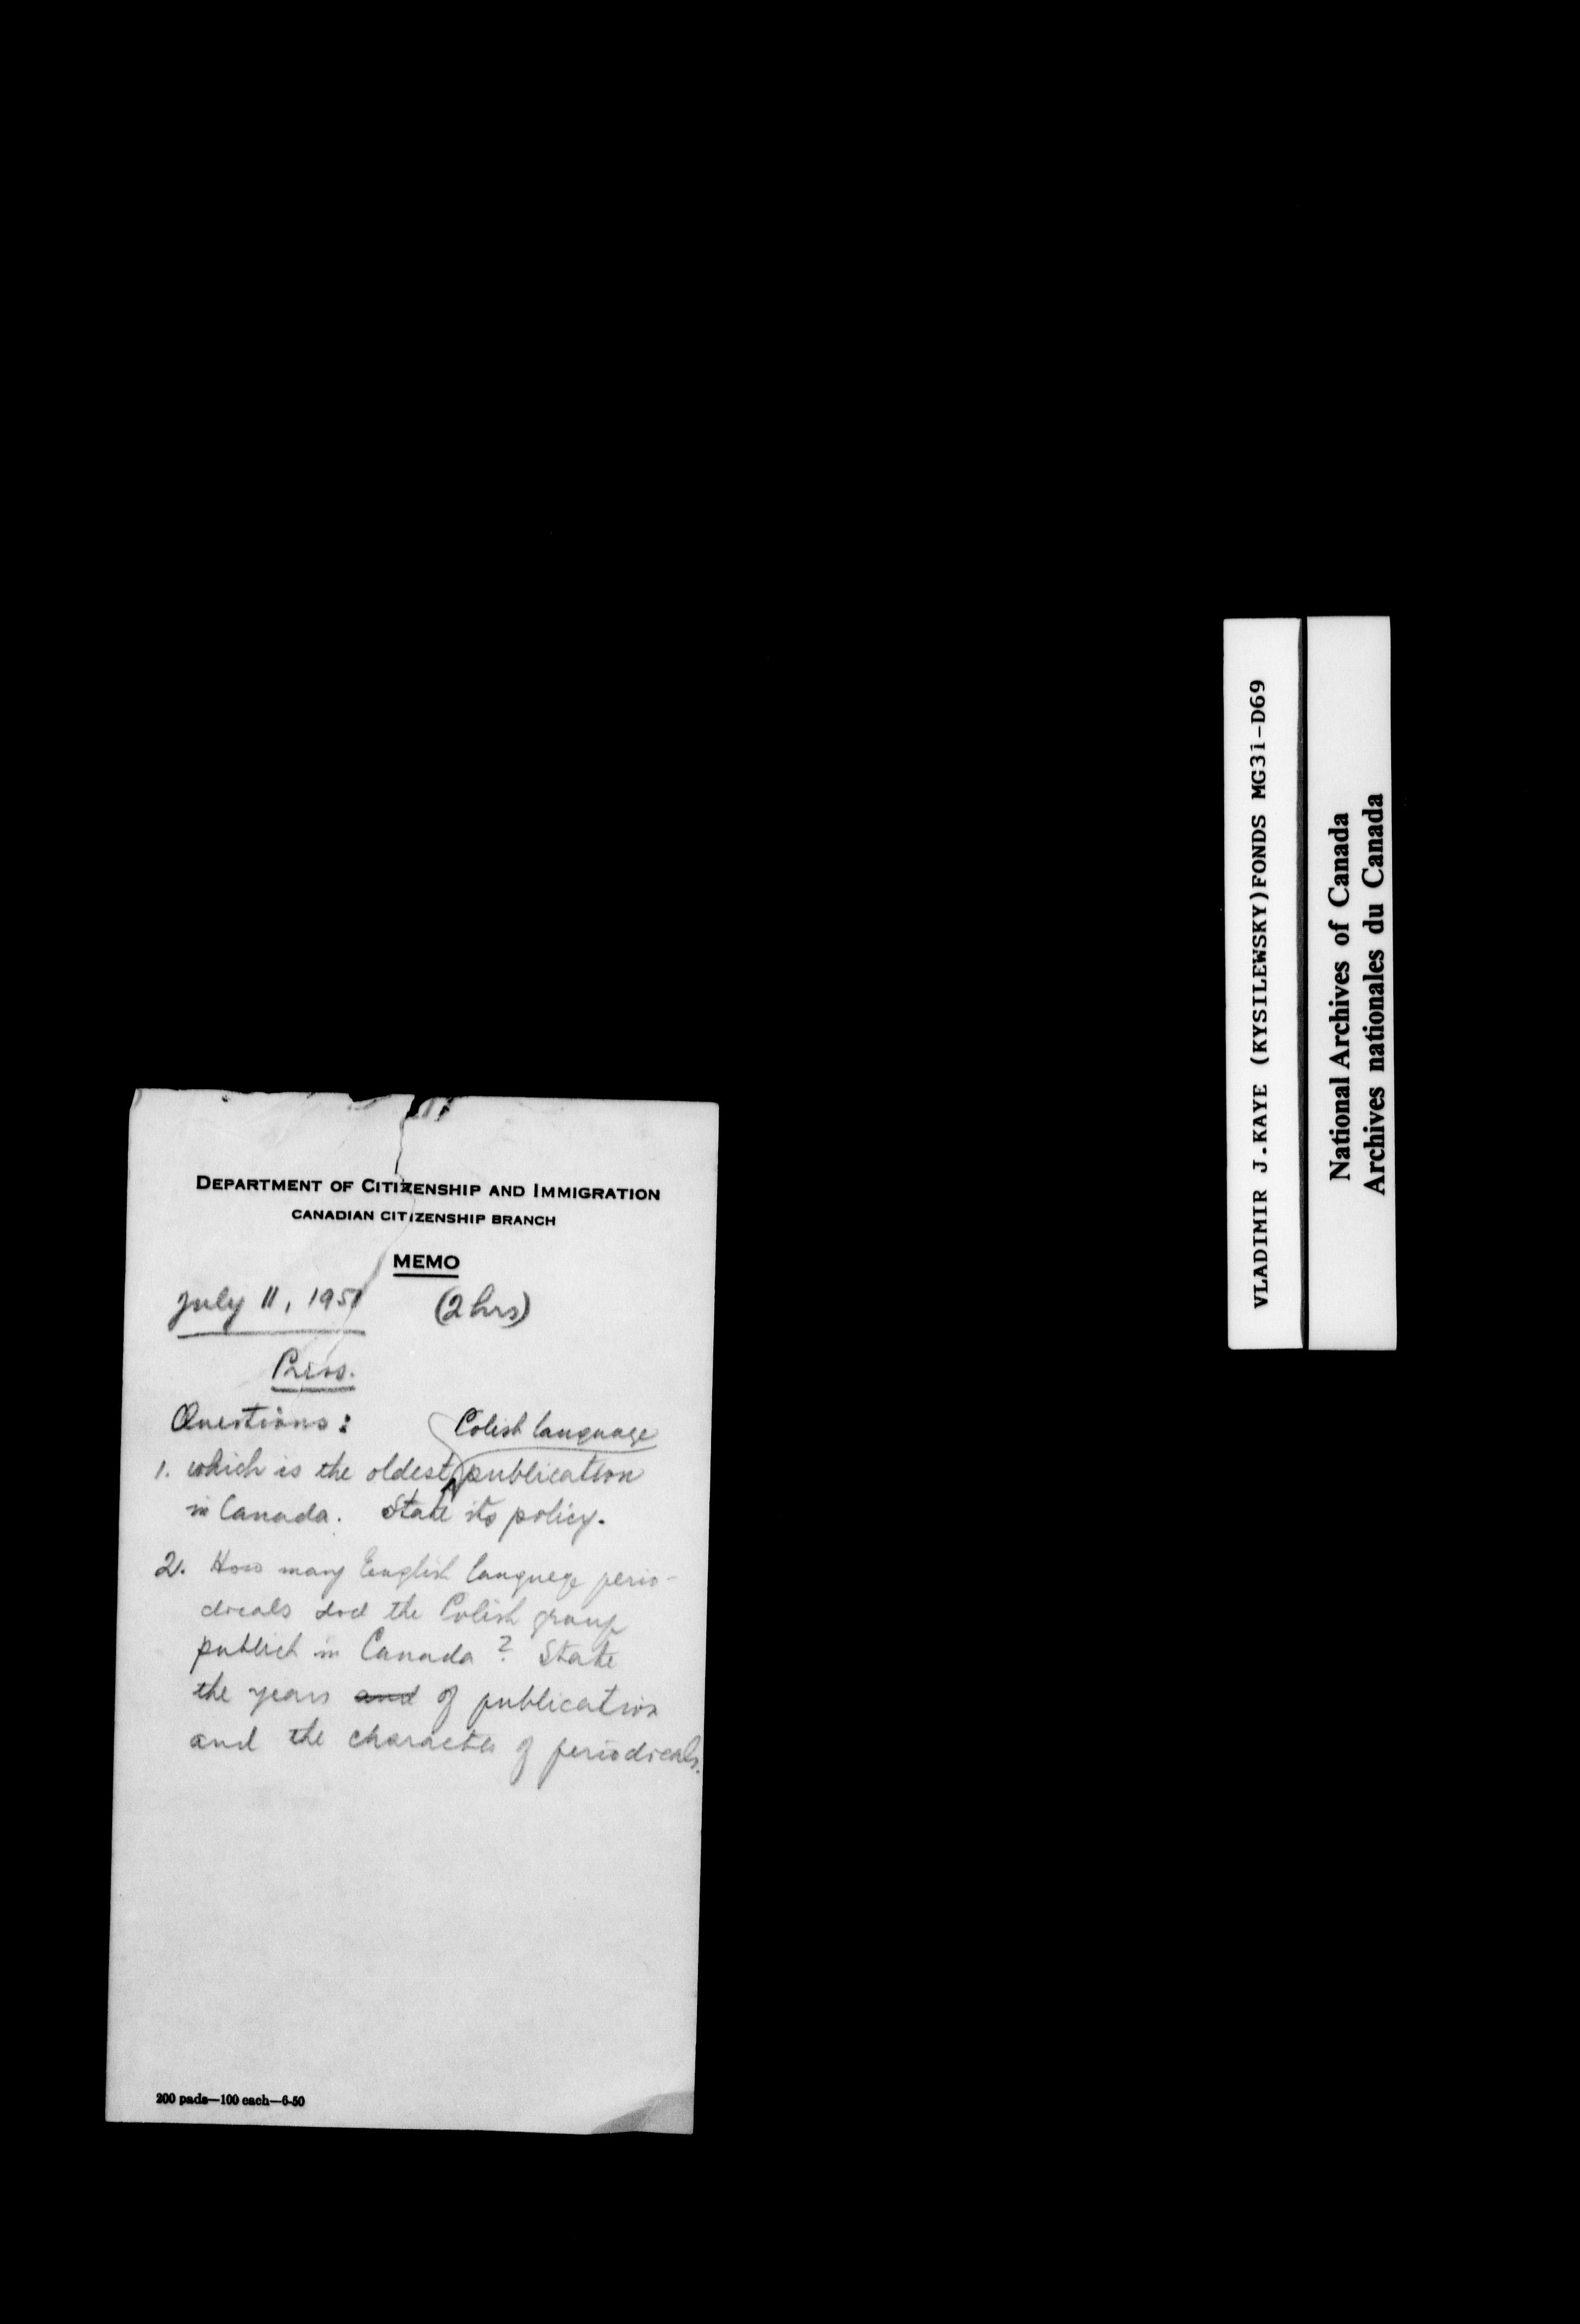 DEPARTMENT OF CITIZENSHIP AND IMMIGRATION
CANADIAN CITIZENSHIP BRANCH
MEMO
July 11, 1951 (2 hrs)
Press.
Questions:
Polish language
1. which is the oldest publication
in Canada. State its policy.
2. How many English language perio-
dicals did the Polish group
publish in Canada? State
the years and of publication
and the character of periodicals.
200 pads—100 each—6-50
VLADIMIR J.KAYE (KYSILEWSKY)FONDS MG31-D69
National Archives of Canada
Archives nationales du Canada